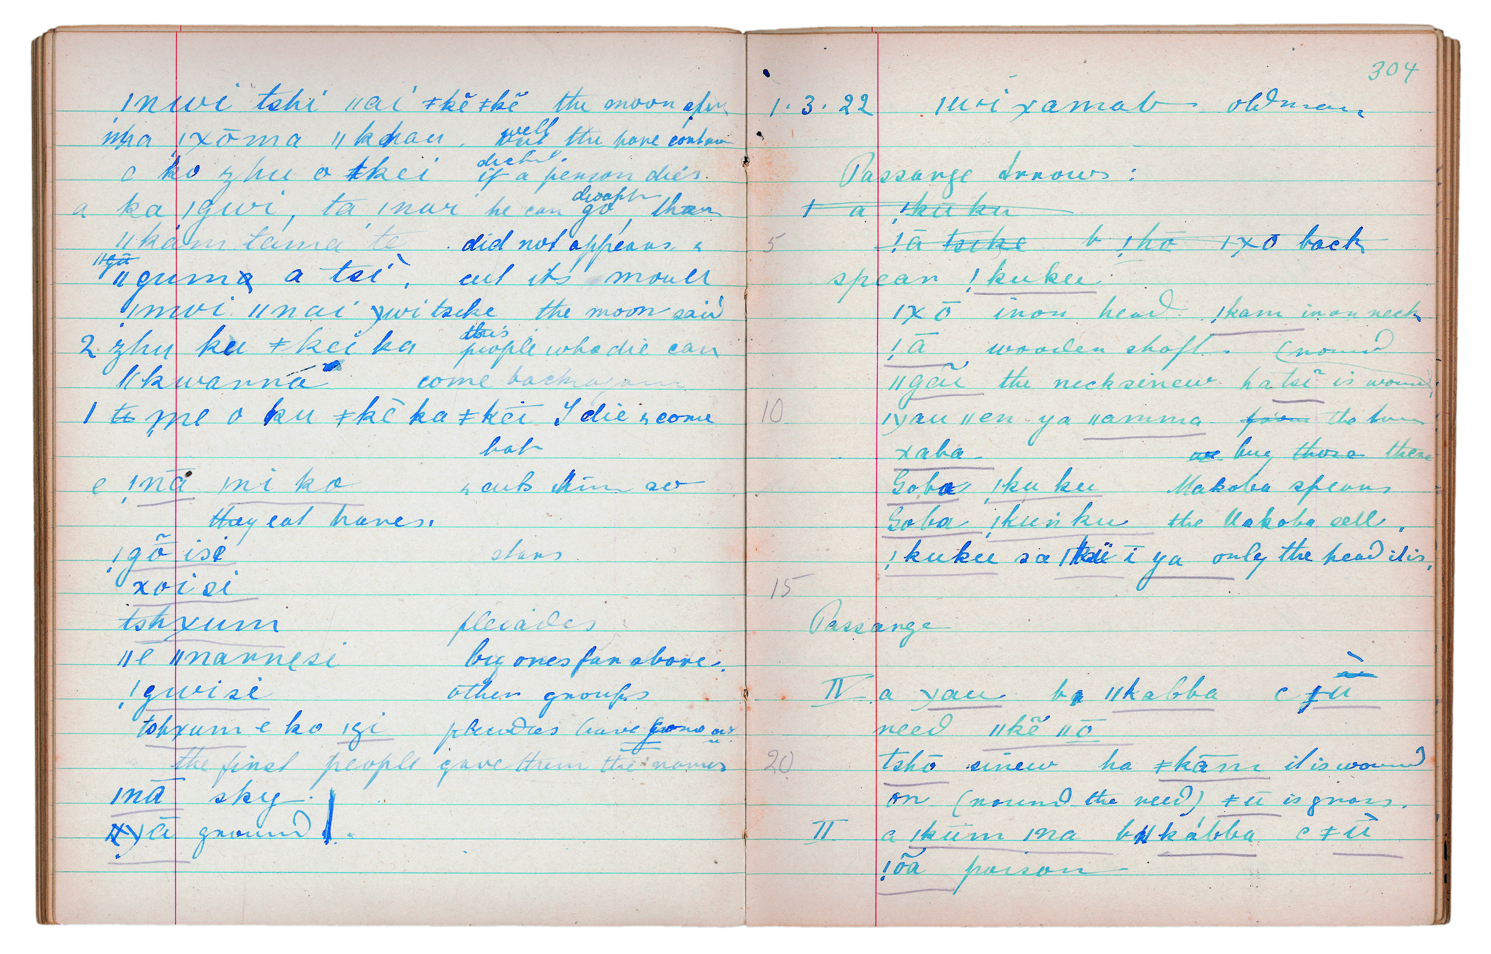 ǀnwi tshi ǁai ǂkĕ ǂkĕ the moon
ǀxōma ǁkhau. well the hare
c ko zhu o ǂkei if a person dies.
a ka ǀgwi, ta ǀnwi he can go, then
ǁkám tama te did not appears &
ǁguma a tsi, cut its mouth
ǀnwi ǁnai ywi tseke the moon said
2 zhu ku ǂkei ka this people who die can
ǁkwanna come back again
1 me o ku ǂkē ka ǂkei I die & come
bak
e ǃnā ǀni ko & cuts him so
they eat hares.
ǃgõ isi stars
xoisi
tshxum pleiades
ǁe ǁnarresi big ones far above.
ǃgwisi other groups
tshxum e ko ǀgi pleiades have
the first people gave them the names
ǀnā sky.
ground
304
1.3.22 ǀwixamab old man,
Passarge Arrows:
1 a ǃkuku
5 ǃā tseke b ǃhō ǀxō back
spear ǃkuku
ǀxō iron head ǃkam iron neck
ǃā wooden shaft. (round
ǁgāi the necksinew ha tsi is wound
10 ǀyau ǁen ya ǁamma from the
xaba we buy those there
Goba ǃkuku Makoba spears
Goba ǃkunku the Makoba sell.
ǃkuku sa ī ya only the head it is.
15
Passarge
IV a yau b ǁkabba c ǂū
reed ǁkē ǁō
20 tshō sinew ha ǂkām it is wound
on (round the reed) ǂū is grass.
II a ǀkūm ǀna b ǁkabba c ǂū
ǃōa poison